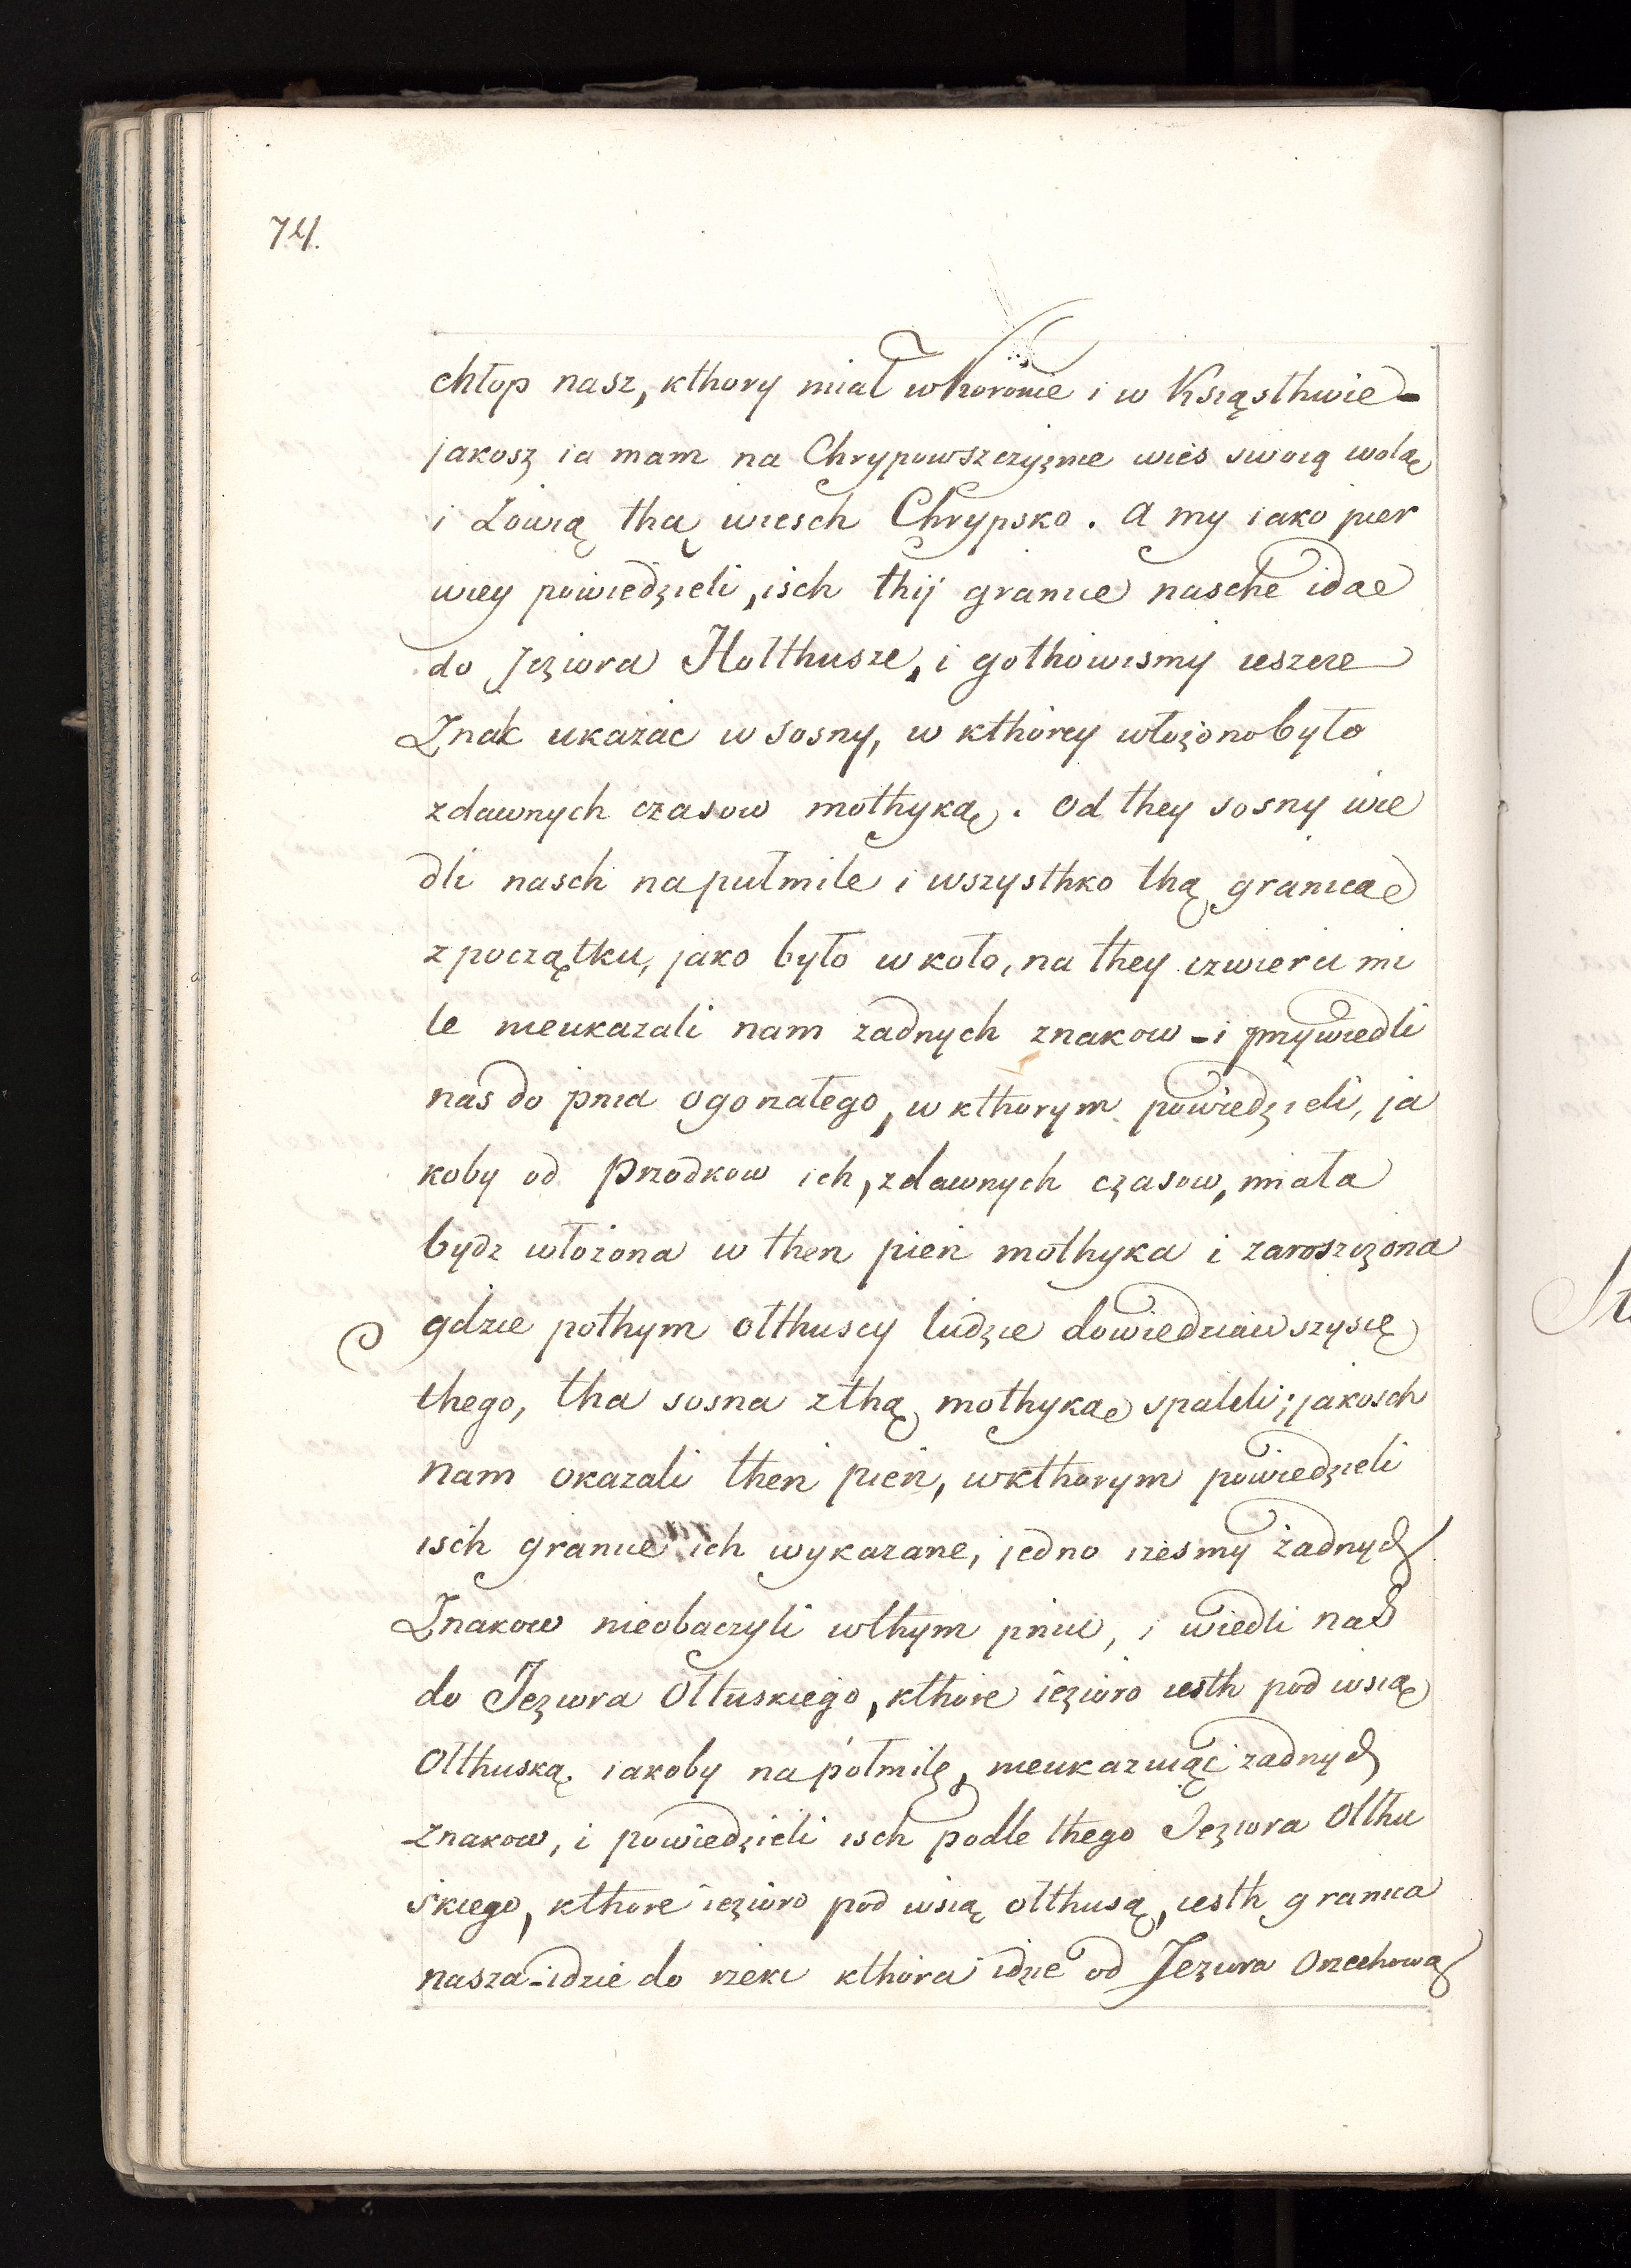 74.
chłop nasz, kthory miał wkoronie i w Ksiąsthwie -
jakosz ia mam na Chrypowszczyznie wies swoią wolą
i Zowią thą wiesch Chrypsko. a my iako pier
wiey powiedzieli, isch thij granice nasche idae
do Jeziora Holthusze, i gothowismy ieszcze
Znak ukazac w sosny, w kthorey włozono było
zdawnych czasow mothyką. Od they sosny wie
dli nasch na pulmile i wszysthko thą granicae
z początku, jako było wkoło, na they czwierci mi
le nieukazali nam zadnych znakow - i przywiedli
nas do pnia ogorzałego, w kthorym powiedzieli, ja
koby od przodkow ich, zdawnych czasow, miała
bydz włozona w then pień mothyka i zaroszczona
gdzie pothym ołthuscy ludzie dowiedziawszysię
thego, tha sosna zthą mothykae spalili; jakosch
nam okazali then pień, wkthorym powiedzieli
isch granice ich wykazane, jedno zesmy żadnych
Znakow nieobaczyli wthym pniu, i wiedli nas
do Jeziora Ołtuskiego, kthore iezioro iesth pod wsią
Ołthuską iakoby na połmilę, nieukazuiąc zadnych
znakow, i powiedzieli isch podle thego Jeziora Ołthu
skiego, kthore iezioro pod wsią ołthusą, iesth granica
nasza - idzie do rzeki kthora idzie od Jeziora Orzechowa